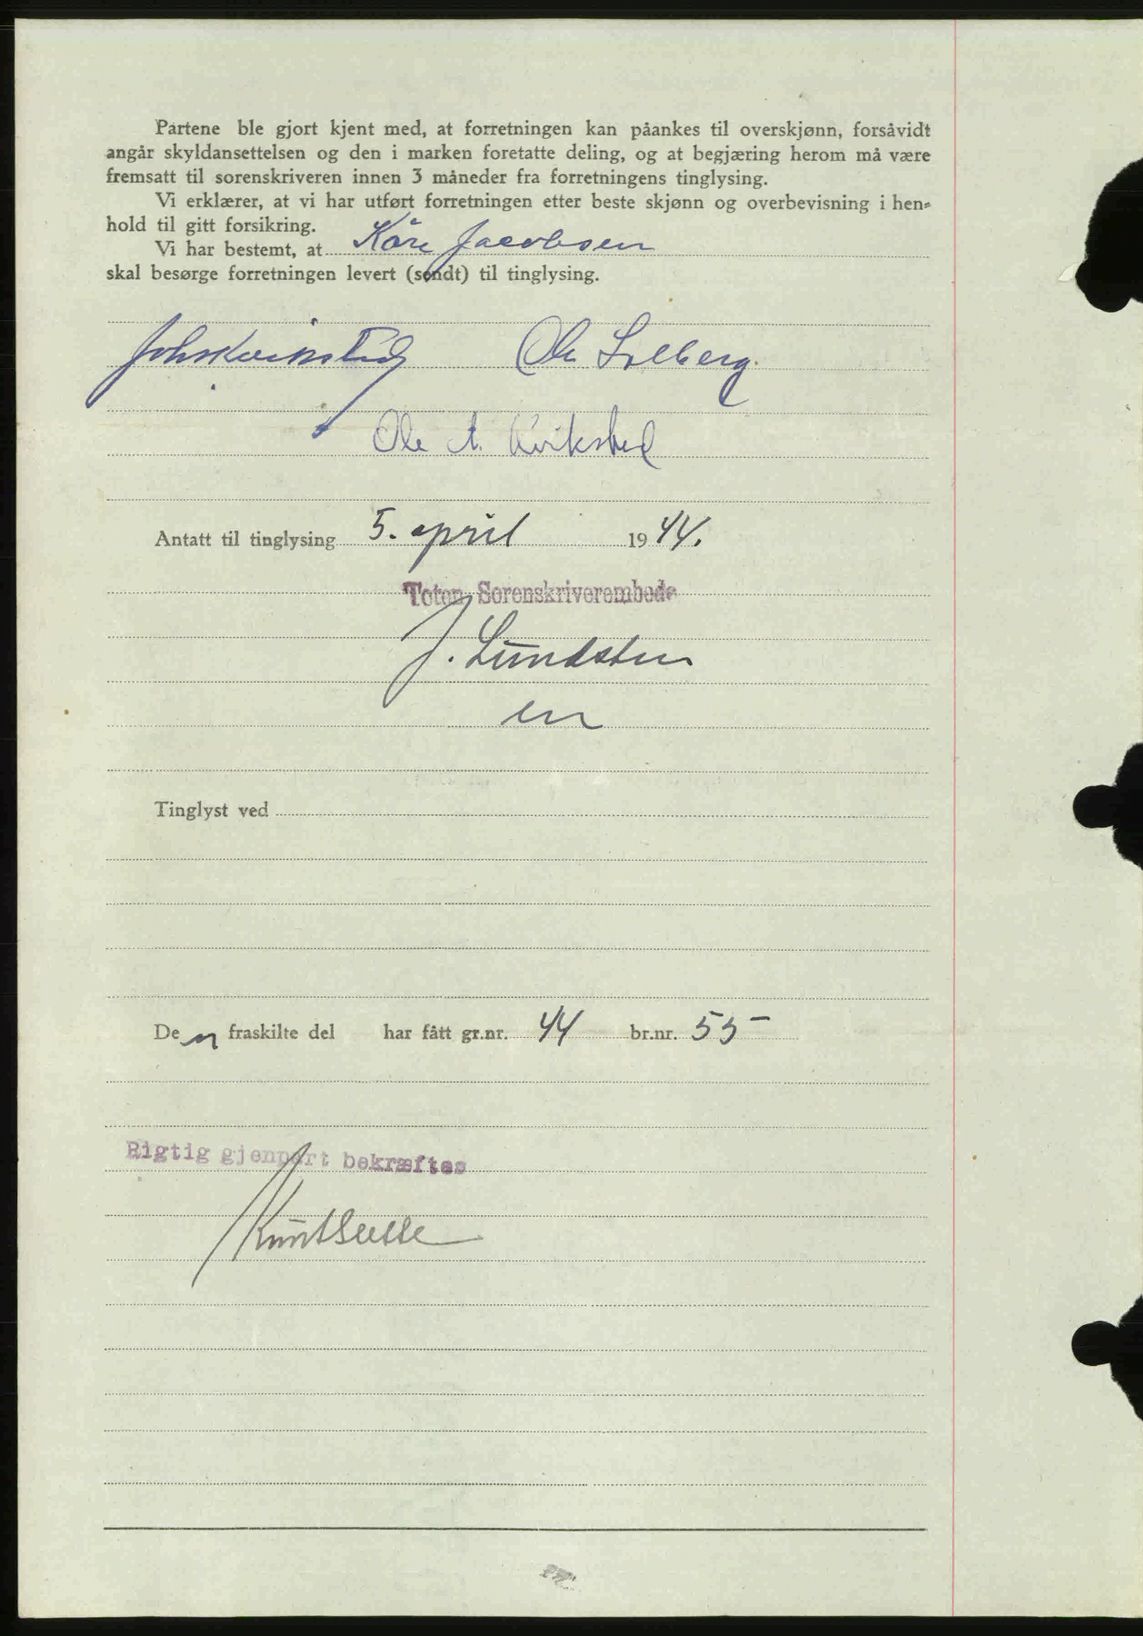 Partene ble gjort kjent med, at forretningen kan påankes til overskjønn, forsåvidt
angår skyldansettelsen og den i marken foretatte deling, og at begjæring herom må være
fremsatt til sorenskriveren innen 3 måneder fra forretningens tinglysing.
Vi erklærer, at vi har utført forretningen etter beste skjønn og overbevisning i hen-
hold til gitt forsikring.
Vi har bestemt, at Kåre Jacobsen
skal besørge forretningen levert (sendt) til tinglysing.
Joh. Kvikstad Ole Solberg.
Ole A. Kvikstad
Antatt til tinglysing 5. april 1944.
Toten Sorenskriverembede
J. Lundsten
Tinglyst ved
Den fraskilte del har fått gr.nr. 44 br.nr. 55
Rigtig gjenpart bekræftes